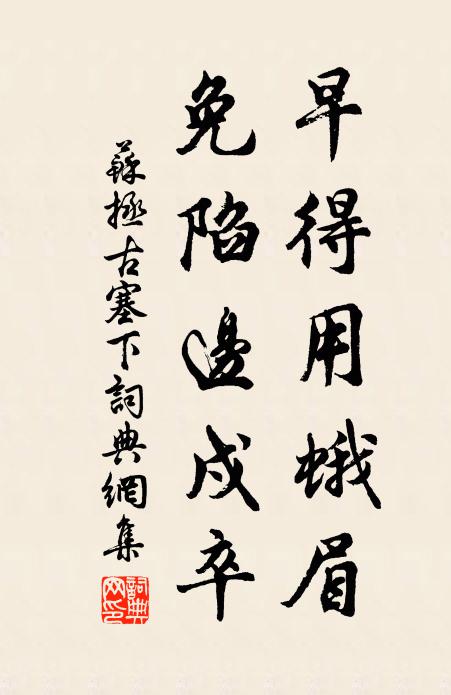 早得用蛾眉
免陷邊戍卒
蘇拯古塞下詞典網集
詞典網印